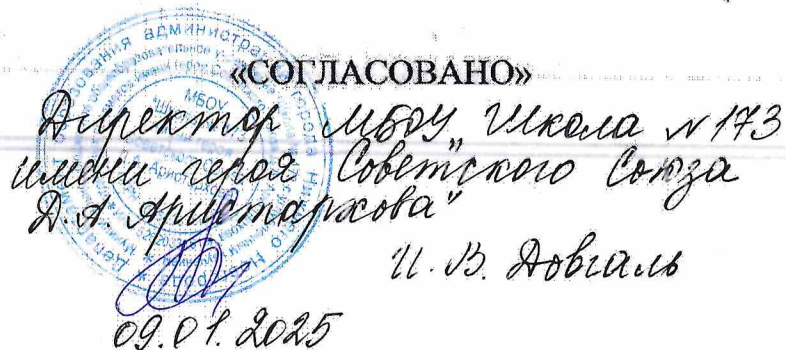 «СОГЛАСОВАНО»
Директор МБОУ "Школа №173
имени героя Советского Союза
Д.А. Аристархова"
И.В. Довгаль
09.01.2025